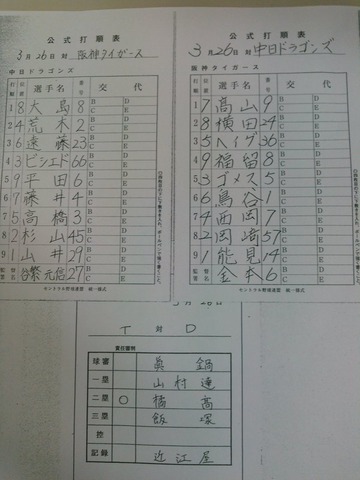 公式打順表
3月26日 対 阪神タイガース
中日ドラゴンズ
打順 位置 選手名 番号 交代
1 8 大島 8 B C D E
2 4 荒木 2 B C D E
3 6 遠藤 23 B C D E
4 3 ビシエド 66 B C D E
5 9 平田 6 B C D E
6 7 藤井 4 B C D E
7 5 高橋 3 B C D E
8 2 杉山 45 B C D E
9 1 山井 29 B C D E
監督 署名 谷繁元信 27
セントラル野球連盟 統一様式
公式打順表
3月26日 対 中日ドラゴンズ
阪神タイガース
打順 位置 選手名 番号 交代
1 7 高山 9 B C D E
2 8 横田 24 B C D E
3 5 ヘイグ 36 B C D E
4 9 福留 8 B C D E
5 3 ゴメス 5 B C D E
6 6 鳥谷 1 B C D E
7 4 西岡 7 B C D E
8 2 岡﨑 57 B C D E
9 1 能見 14 B C D E
監督 署名 金本 6
セントラル野球連盟 統一様式
3月26日
T 対 D
責任審判
球審 眞鍋
一塁 山村達
二塁 ○ 橘髙
三塁 飯塚
控
記録 近江屋